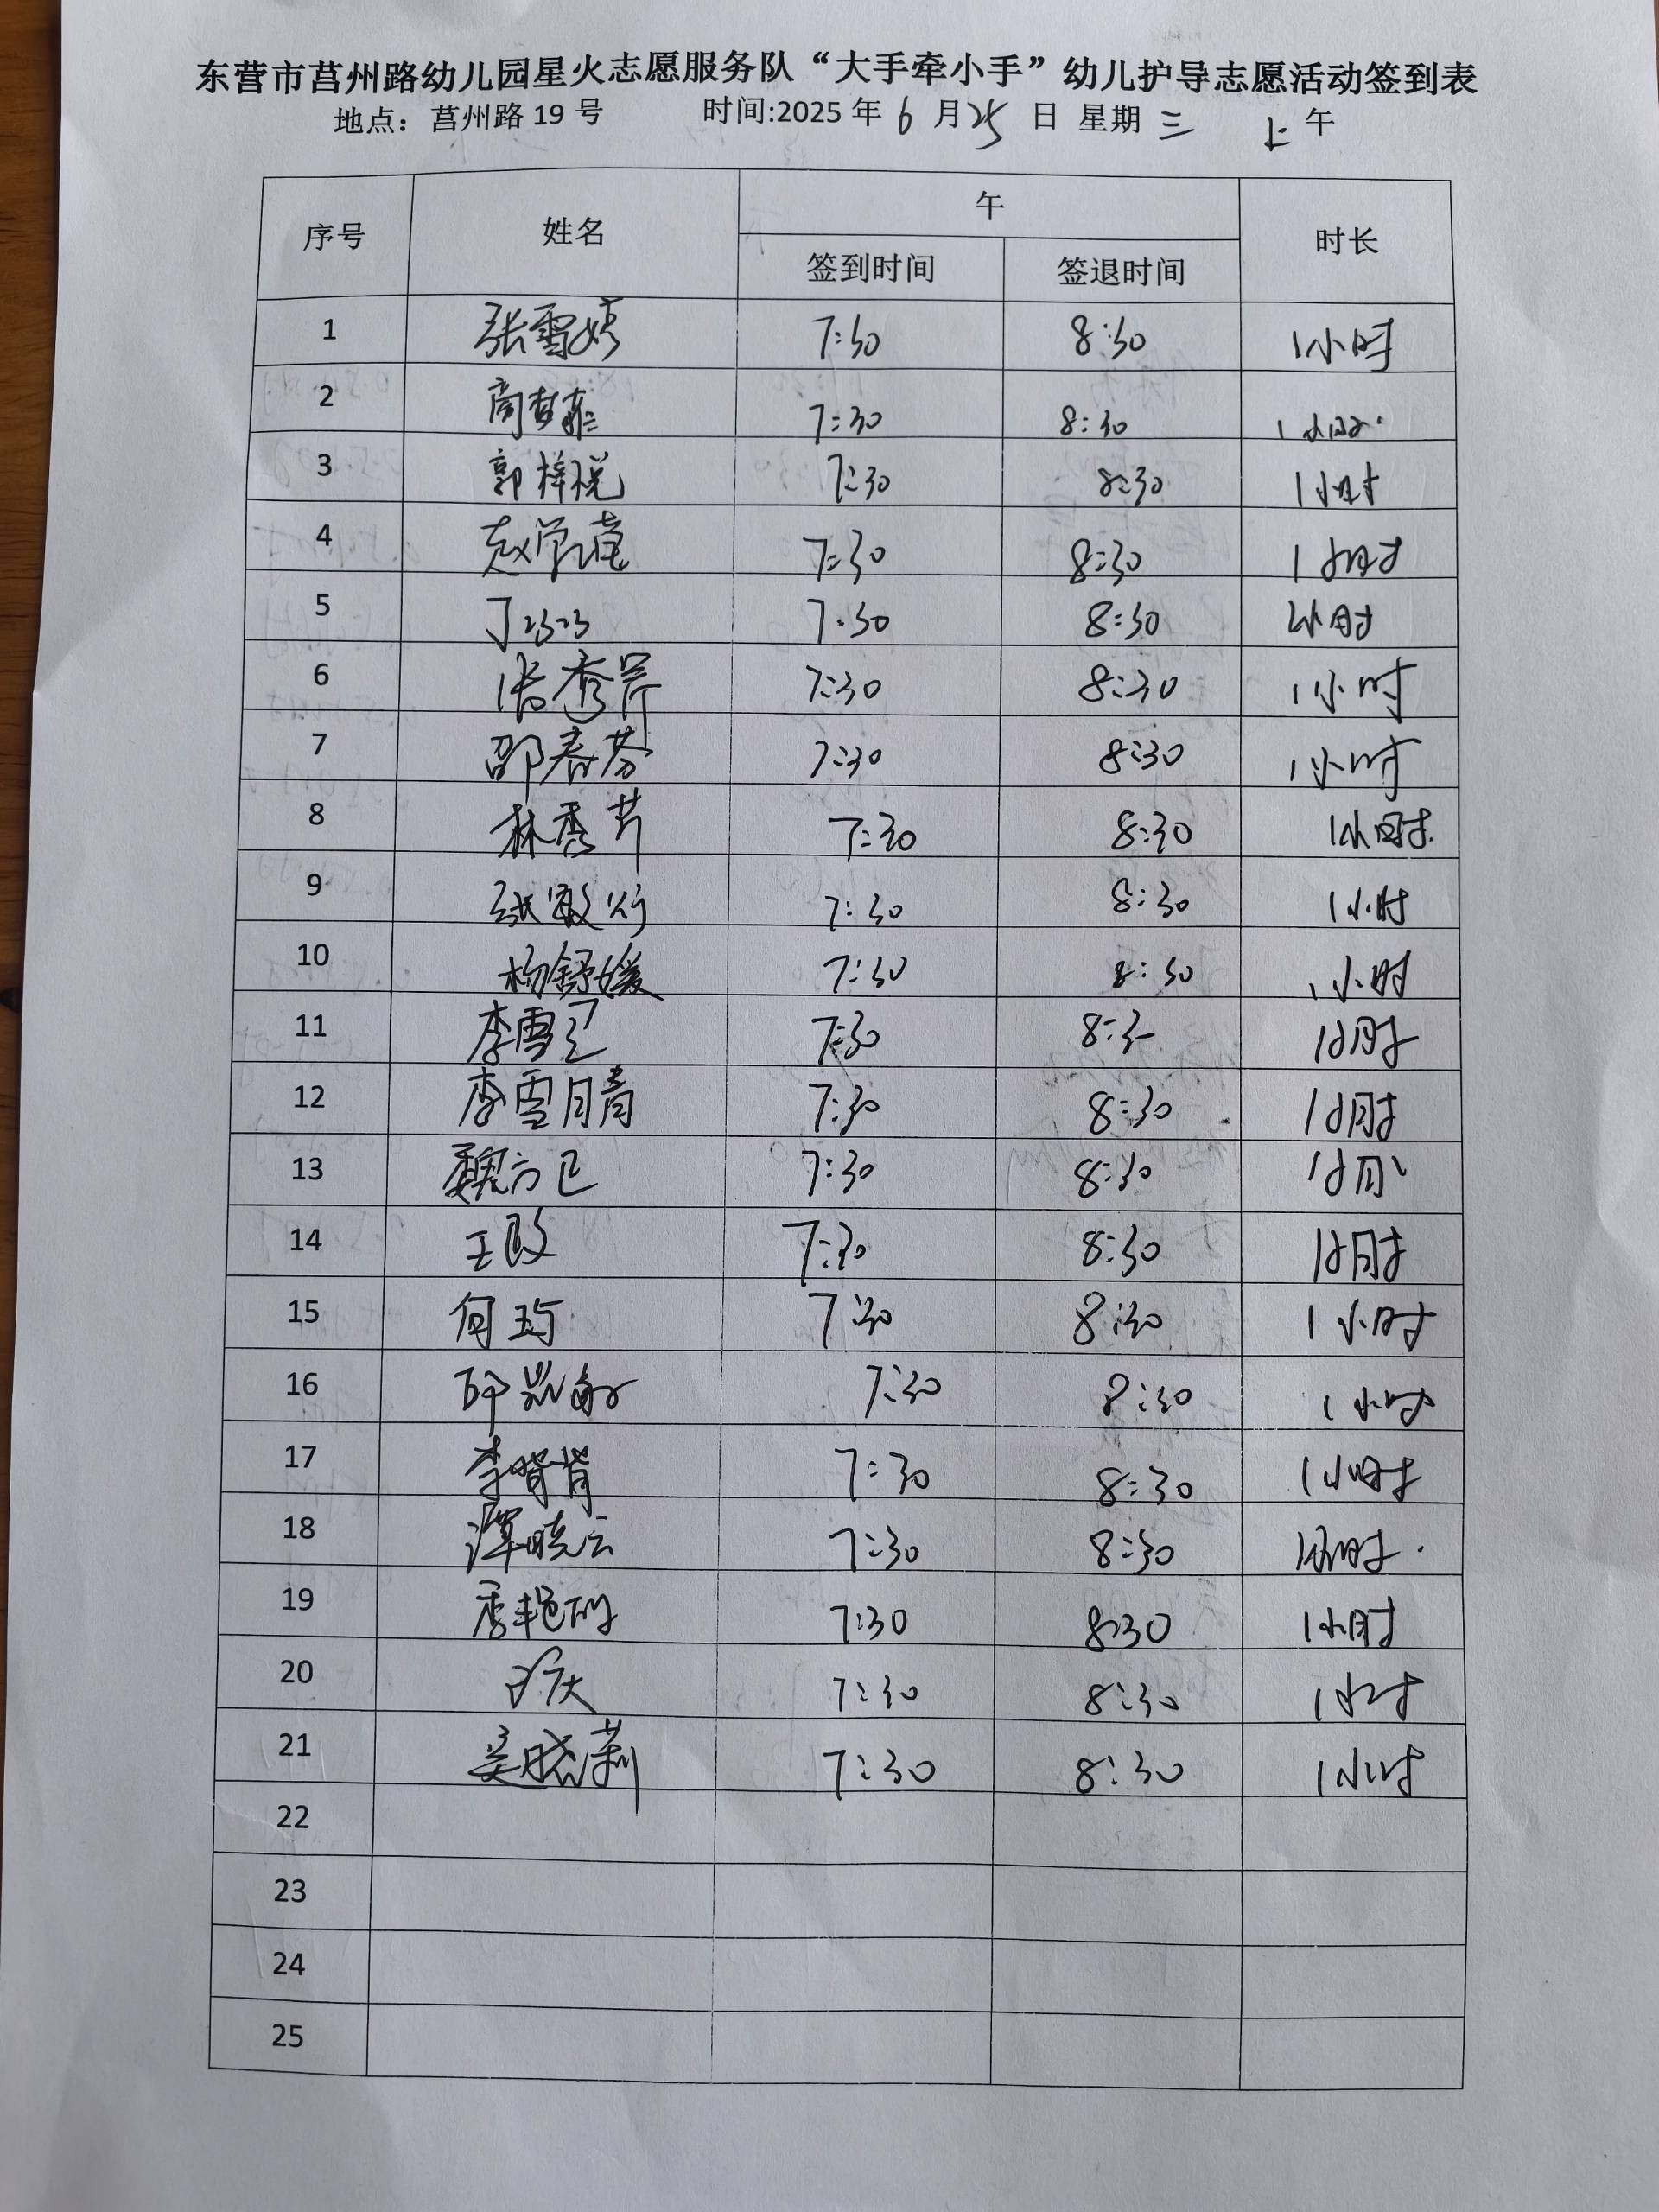 东营市莒州路幼儿园星火志愿服务队“大手牵小手”幼儿护导志愿活动签到表
地点：莒州路 19 号 时间:2025 年 6 月 25 日 星期 三 上 午
序号 姓名 午 时长
签到时间 签退时间
1 张雪婷 7:30 8:30 1小时
2 7:30 8:30 1小时
3 郭梓悦 7:30 8:30 1小时
4 赵学莲 7:30 8:30 1小时
5 7:30 8:30 1小时
6 张秀芹 7:30 8:30 1小时
7 邵春芬 7:30 8:30 1小时
8 林秀芹 7:30 8:30 1小时
9 张敏 7:30 8:30 1小时
10 杨舒媛 7:30 8:30 1小时
11 李雪 7:30 8:30 1小时
12 李雪晴 7:30 8:30 1小时
13 魏 7:30 8:30 1小时
14 王 7:30 8:30 1小时
15 何 7:30 8:30 1小时
16 7:30 8:30 1小时
17 李 7:30 8:30 1小时
18 谭晓云 7:30 8:30 1小时
19 季艳 7:30 8:30 1小时
20 7:30 8:30 1小时
21 吴晓莉 7:30 8:30 1小时
22
23
24
25